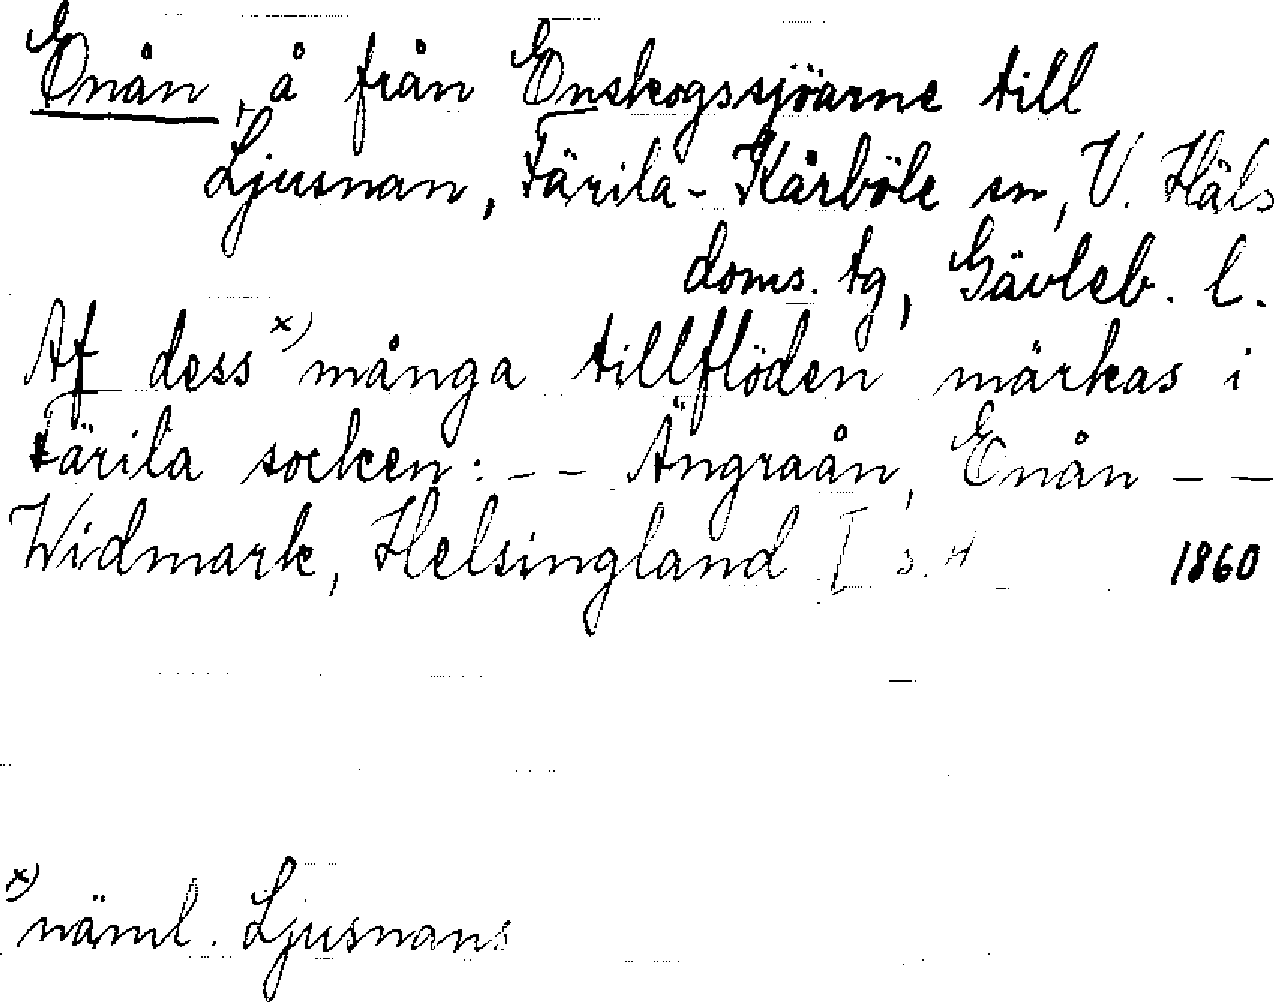 Enån, å från Enskogssjöarne till
Ljusnan, Färila-Kårböle sn, V. Häls
doms. tg, Gävleb. l.
Af dess x) många tillflöden märkas i
Färila socken: – – Ängraån, Enån – –
Widmark, Helsingland I s. 1860
x) näml. Ljusnans